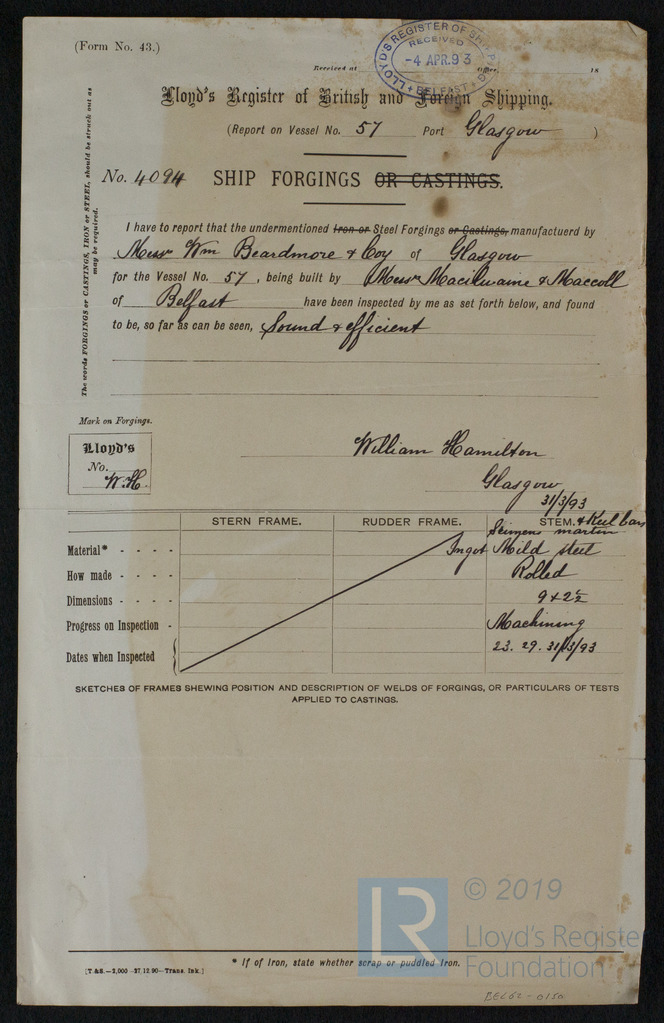 (Form No. 43.)
LLOYD'S REGISTER OF SHIPPING
RECEIVED
-4 APR.93
BELFAST
Received at Office, 18
Lloyd's Register of British and Foreign Shipping.
(Report on Vessel No. 57 Port Glasgow )
No. 4094 SHIP FORGINGS OR CASTINGS.
The words FORGINGS or CASTINGS, IRON or STEEL, should be struck out as
may be required.
I have to report that the undermentioned Iron or Steel Forgings or Castings, manufactuerd by
Messrs Wm Beardmore & Coy of Glasgow
for the Vessel No. 57, being built by Messrs Macilwaine & Maccoll
of Belfast have been inspected by me as set forth below, and found
to be, so far as can be seen, Sound & efficient
Mark on Forgings.
Lloyd's
No.
W.H.
William Hamilton
Glasgow
31/3/93
STERN FRAME. RUDDER FRAME. STEM. & Keel bars
Seimens martin
Material* - - - - Ingot Mild steel
How made - - - - Rolled
Dimensions - - - - 9 x 2½
Progress on Inspection - Machining
Dates when Inspected 23. 29. 31/3/93
SKETCHES OF FRAMES SHEWING POSITION AND DESCRIPTION OF WELDS OF FORGINGS, OR PARTICULARS OF TESTS
APPLIED TO CASTINGS.
* If of Iron, state whether scrap or puddled iron.
[T & S.—2,000 -27.12.90—Trans. Ink.]
LR
© 2019
Lloyd's Registe
Foundation
BEL62-0150